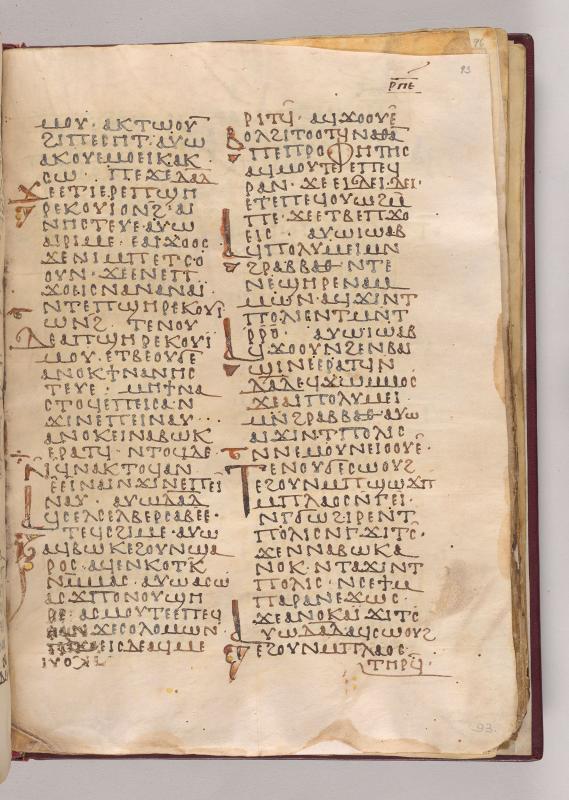 ⲣ̅ⲡ̅ⲉ̅
ⲙⲟⲩ· ⲁⲕⲧⲱⲟⲩ
ϩⲓⲡⲉⲥⲏⲧ· ⲁⲩⲱ
ⲁⲕⲟⲩⲉⲙⲟⲉⲓⲕ ⲁⲕ
ⲥⲱ· ⲡⲉϫⲉⲇⲁⲇ
ϫⲉⲉⲧⲓⲉⲣⲉⲡϣⲏ
ⲣⲉⲕⲟⲩⲓⲟⲛϩ· ⲁⲓ
ⲛⲏⲥⲧⲉⲩⲉ ⲁⲩⲱ
ⲁⲓⲣⲓⲙⲉ· ⲉⲁⲓϫⲟⲟⲥ
ϫⲉⲛⲓⲙⲡⲉⲧⲥⲟ
ⲟⲩⲛ· ϫⲉⲉⲛⲉⲡ
ϫⲟⲉⲓⲥⲛⲁⲛⲁⲛⲁⲓ
ⲛⲧⲉⲡϣⲏⲣⲉⲕⲟⲩⲓ
ⲱⲛϩ· ⲧⲉⲛⲟⲩ
ⲇⲉⲁⲡϣⲏⲣⲉⲕⲟⲩⲓ
ⲙⲟⲩ· ⲉⲧⲃⲉⲟⲩϭⲉ
ⲁⲛⲟⲕϯⲛⲁⲛⲏⲥ
ⲧⲉⲩⲉ· ⲙⲏϯⲛⲁ
ⲥⲧⲟϥⲉⲡⲉⲓⲥⲁ ⲛ
ϫⲓⲛⲉⲡⲉⲓⲛⲁⲩ
ⲁⲛⲟⲕⲉⲓⲛⲁⲃⲱⲕ
ⲉⲣⲁⲧϥ· ⲛⲧⲟϥⲇⲉ
ⲛϥⲛⲁⲕⲧⲟϥⲁⲛ
ⲛϫⲓⲛⲉⲡⲉⲓ
ⲛⲁⲩ· ⲁⲩⲱⲇⲁⲇ
ϥⲥⲉⲗⲥⲉⲗⲃⲉⲣⲥⲁⲃⲉⲉ·
ⲧⲉϥⲥϩⲓⲙⲉ ⲁⲩⲱ
ⲁϥⲃⲱⲕⲉϩⲟⲩⲛϣⲁ
ⲣⲟⲥ· ⲁϥⲉⲛⲕⲟⲧⲕ
ⲛⲙⲙⲁⲥ· ⲁⲩⲱⲁⲥⲱ
ⲁⲥϫⲡⲟⲛⲟⲩϣⲏ
ⲣⲉ· ⲁⲥⲙⲟⲩⲧⲉⲉⲡⲉϥ
ⲣⲁⲛ ϫⲉⲥⲟⲗⲟⲙⲱⲛ
ⲇⲉⲁϥⲙⲉ
ⲣⲓⲧϥ· ⲁϥϫⲟⲟⲩⲉ̅
ⲃⲟⲗϩⲓⲧⲟⲟⲧϥⲛⲁⲑⲁ̅
ⲡⲉⲡⲣⲟⲫⲏⲧⲏⲥ
ⲁϥⲙⲟⲩⲧⲉⲉⲡⲉϥ
ⲣⲁⲛ· ϫⲉ
ⲉⲧⲉⲡⲉϥⲟⲩⲱϩⲙ
ⲡⲉ· ϫⲉⲉⲧⲃⲉⲡϫⲟ
ⲉⲓⲥ· ⲁⲩⲱⲓⲱⲁⲃ
ϥⲡⲟⲗⲩⲙⲉⲓⲙⲛ
ϩⲣⲁⲃⲃⲁⲑ· ⲛⲧⲉ
ⲛⲉϣⲏⲣⲉⲛⲁⲙ
ⲙⲱⲛ· ⲁϥϫⲓⲛⲧ
ⲡⲟⲗⲓⲥⲛⲧⲙⲛⲧ
ⲣⲣⲟ· ⲁⲩⲱⲓⲱⲁⲃ
ϥϫⲟⲟⲩⲛϩⲉⲛⲃⲁⲓ
ϣⲓⲛⲉⲉⲣⲁⲧϥⲛ
ⲇⲁⲇⲉϥϫⲱⲙⲙⲟⲥ
ϫⲉⲁⲓⲡⲟⲗⲩⲙⲉⲓ
ⲙⲛϩⲣⲁⲃⲃⲁⲑ· ⲁⲩⲱ
ⲁⲓϫⲓⲛⲧⲡⲟⲗⲓⲥ
ⲛⲛⲉⲙⲟⲩⲛⲉⲓⲟⲟⲩⲉ·
ⲧⲉⲛⲟⲩϭⲉⲥⲱⲟⲩϩ
ⲉϩⲟⲩⲛⲙⲡϣⲱϫⲡ
ⲙⲡⲗⲁⲟⲥⲛⲅⲉⲓ·
ⲛⲅϭⲱϩⲓⲣⲉⲛⲧ
ⲡⲟⲗⲓⲥⲛⲅϫⲓⲧⲥ·
ϫⲉⲛⲛⲁⲃⲱⲕⲁ
ⲛⲟⲕ· ⲛⲧⲁϫⲓⲛⲧ
ⲡⲟⲗⲓⲥ· ⲛⲥⲉϯⲙ
ⲡⲁⲣⲁⲛⲉϫⲱⲥ·
ϫⲉⲁⲛⲟⲕⲁⲓϫⲓⲧⲥ
ⲩⲱⲇⲁⲇⲁϥⲥⲱⲟⲩϩ
ⲉϩⲟⲩⲛⲙⲡⲗⲁⲟⲥ
ⲧⲏⲣϥ·
93
96
93.